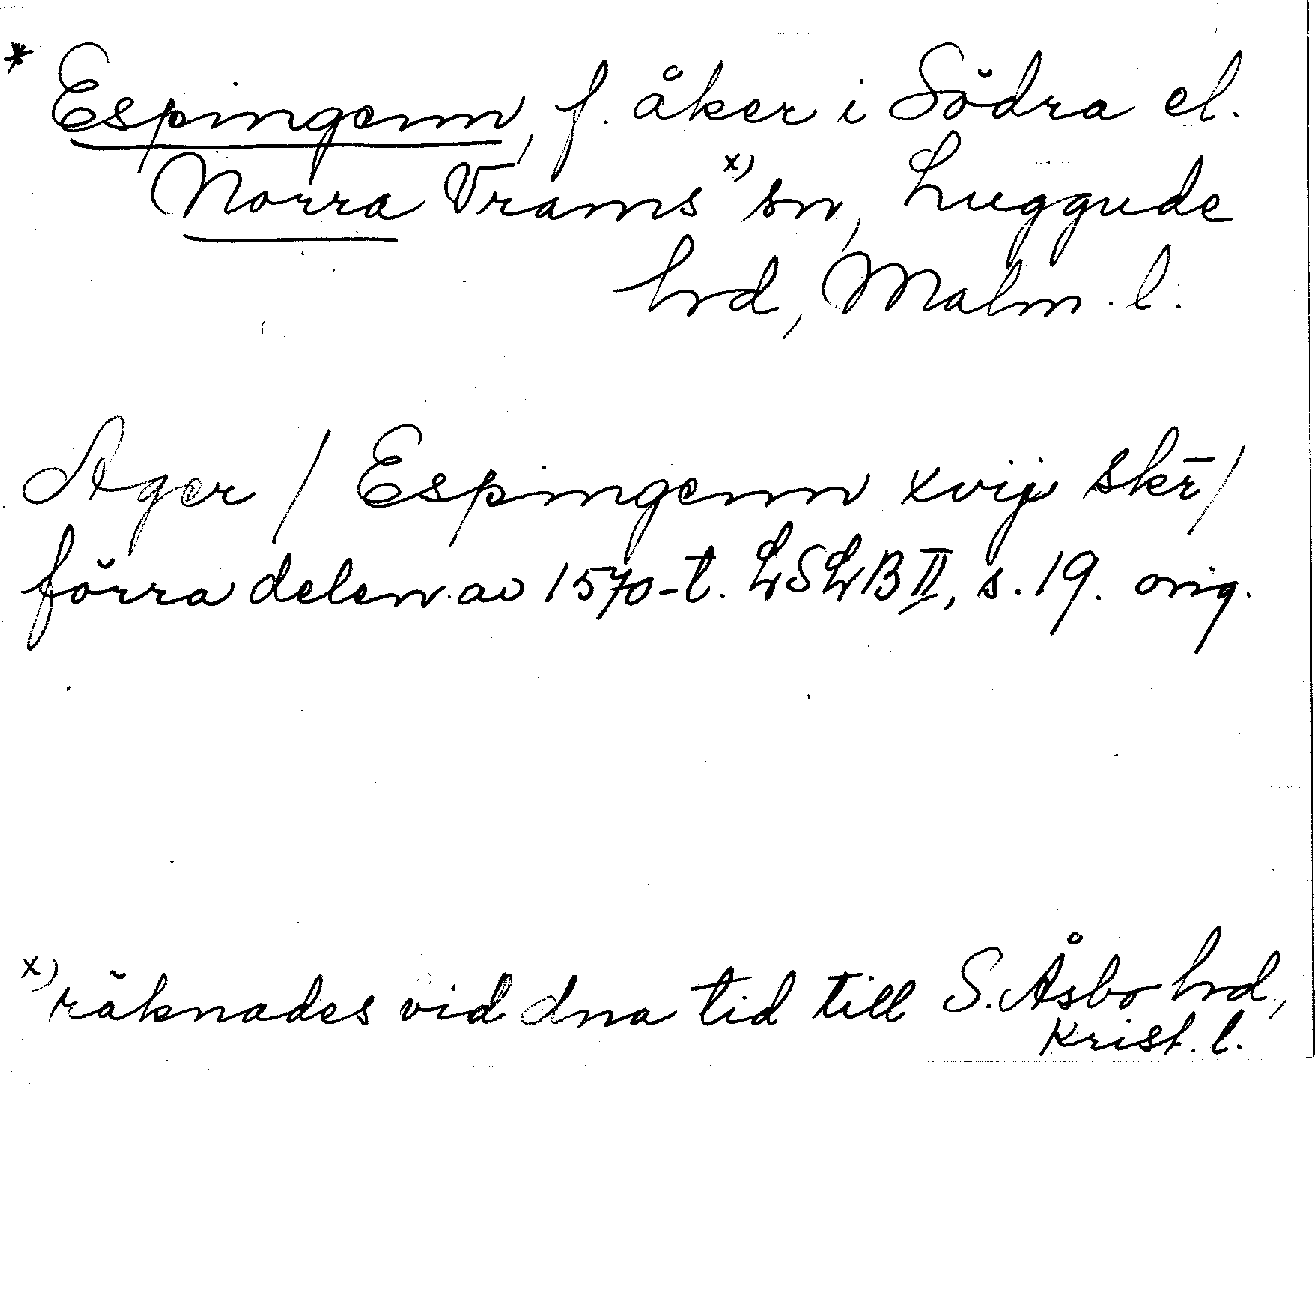 * Espingenn, f. åker i Södra el.
Norra Vrams x) sn, Luggude
hd, Malm. l.
Ager / Espingenn xvij skr̄ /
förra delen av 1570-t. LSLB II, s. 19. orig.
x) räknades vid dna tid till S. Åsbo hd,
Krist. l.